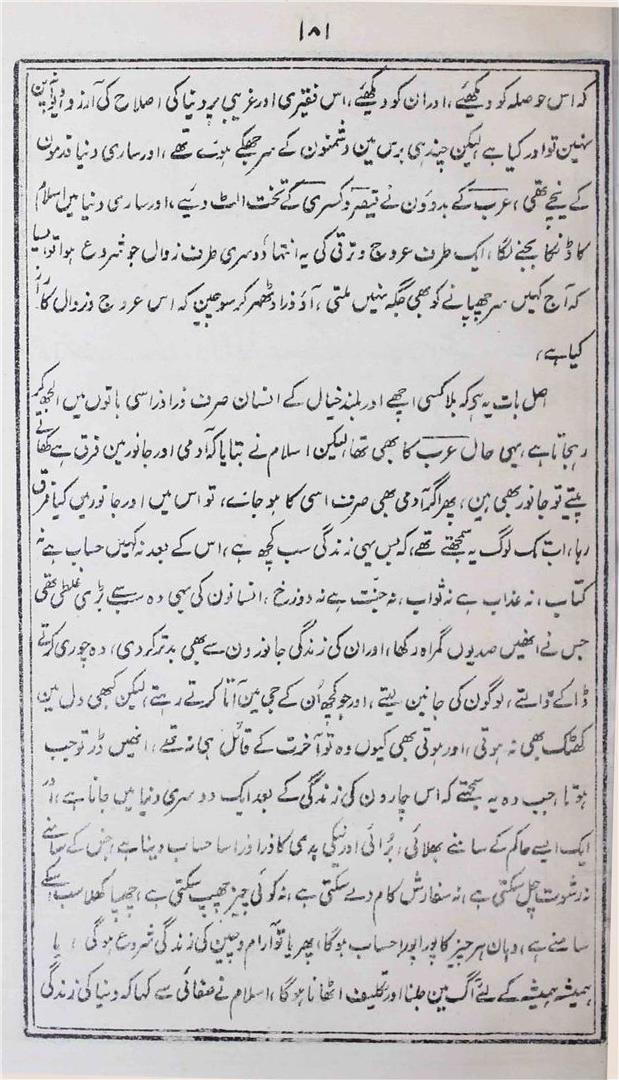 ۱۸۱
کہ اس حوصلہ کو دیکھئے، اور ان کو دیکھئے، اس فقیری اور غریبی پر دنیا کی اصلاح کی آرزو
نہین تو اور کیا ہے لیکن چند ہی برس مین دشمنون کے سر جھکے ہوئے تھے، اور ساری دنیا قدمون
کے نیچے تھی، عرب کے بدوون نے قیصر و کسریٰ کے تخت الٹ دیے، اور ساری دنیا میں اسلام
کا ڈنکا بجنے لگا، ایک طرف عروج و ترقی کی یہ انتہا، دوسری طرف زوال جو شروع ہوا تو ایسا
کہ آج کہیں سر چھپانے کو بھی جگہ نہیں ملتی، آؤ ذرا ٹھہر کر سوچین کہ اس عروج و زوال کا راز
کیا ہے،
اصل بات یہ ہی کہ بلا کسی اچھے اور بلند خیال کے انسان صرف ذرا ذرا سی باتوں میں الجھ کر
رہجاتا ہے، یہی حال عرب کا بھی تھا لیکن اسلام نے بتایا کہ آدمی اور جانور مین فرق ہے کھاتے
پیتے تو جانور بھی ہین، پھر اگر آدمی بھی صرف اسی کا ہو جائے، تو اس میں اور جانور میں کیا فرق
رہا، اب تک لوگ یہ سمجھتے تھے، کہ بس یہی زندگی سب کچھ ہے، اس کے بعد نہ کہیں حساب ہے نہ
کتاب، نہ عذاب ہے نہ ثواب، نہ جنت ہے نہ دوزخ، انسانون کی یہی وہ سب سے بڑی غلطی تھی
جس نے انھیں صدیوں گمراہ رکھا، اور ان کی زندگی جانورون سے بھی بدتر کر دی، وہ چوری کرتے
ڈاکے ڈالتے، لوگون کی جانین لیتے، اور جو کچھ اُن کے جی مین آتا کرتے رہتے، لیکن کبھی دل مین
کھٹک بھی نہ ہوتی، اور ہوتی بھی کیوں وہ تو آخرت کے قائل ہی نہ تھے، انھیں ڈر تو جب
ہوتا، جب وہ یہ سمجھتے کہ اس چار دن کی زندگی کے بعد ایک دوسری دنیا میں جانا ہے، اور
ایک ایسے حاکم کے سامنے بھلائی، بُرائی اور نیکی بدی کا ذرا ذرا سا حساب دینا ہے جس کے سامنے
نہ رشوت چل سکتی ہے، نہ سفارش کام دے سکتی ہے، نہ کوئی چیز چھپ سکتی ہے، چھپا کھلا سب اسکے
سامنے ہے، وہان ہر چیز کا پورا پورا حساب ہوگا، پھر یا تو آرام و چین کی زندگی شروع ہوگی، یا
ہمیشہ ہمیشہ کے لئے آگ مین جلنا اور تکلیف اٹھانا ہوگا، اسلام نے صفائی سے کہا کہ دنیا کی زندگی